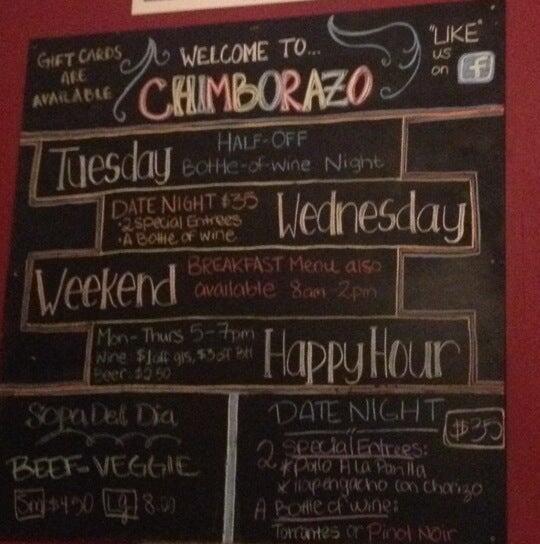 GIFT CARDS
ARE
AVAILABLE
WELCOME TO...
CHIMBORAZO
"LIKE"
us
on
f
Tuesday
HALF-OFF
Bottle-of-wine Night
DATE NIGHT $35
•2 Special Entrees
•A Bottle of wine
Wednesday
Weekend
BREAKFAST Menu also
available 8am-2pm
Mon-Thurs 5-7pm
Wine: $1 off gls, $3 off Btl
Beer: $2.50
Happy Hour
Sopa Del Dia
BEEF-VEGGIE
Sm $4.50 Lg 8.00
DATE NIGHT
$35
2 Special Entrees:
*Pollo A La Parilla
*llapingacho con chorizo
A Bottle of wine:
Torrontes or Pinot Noir